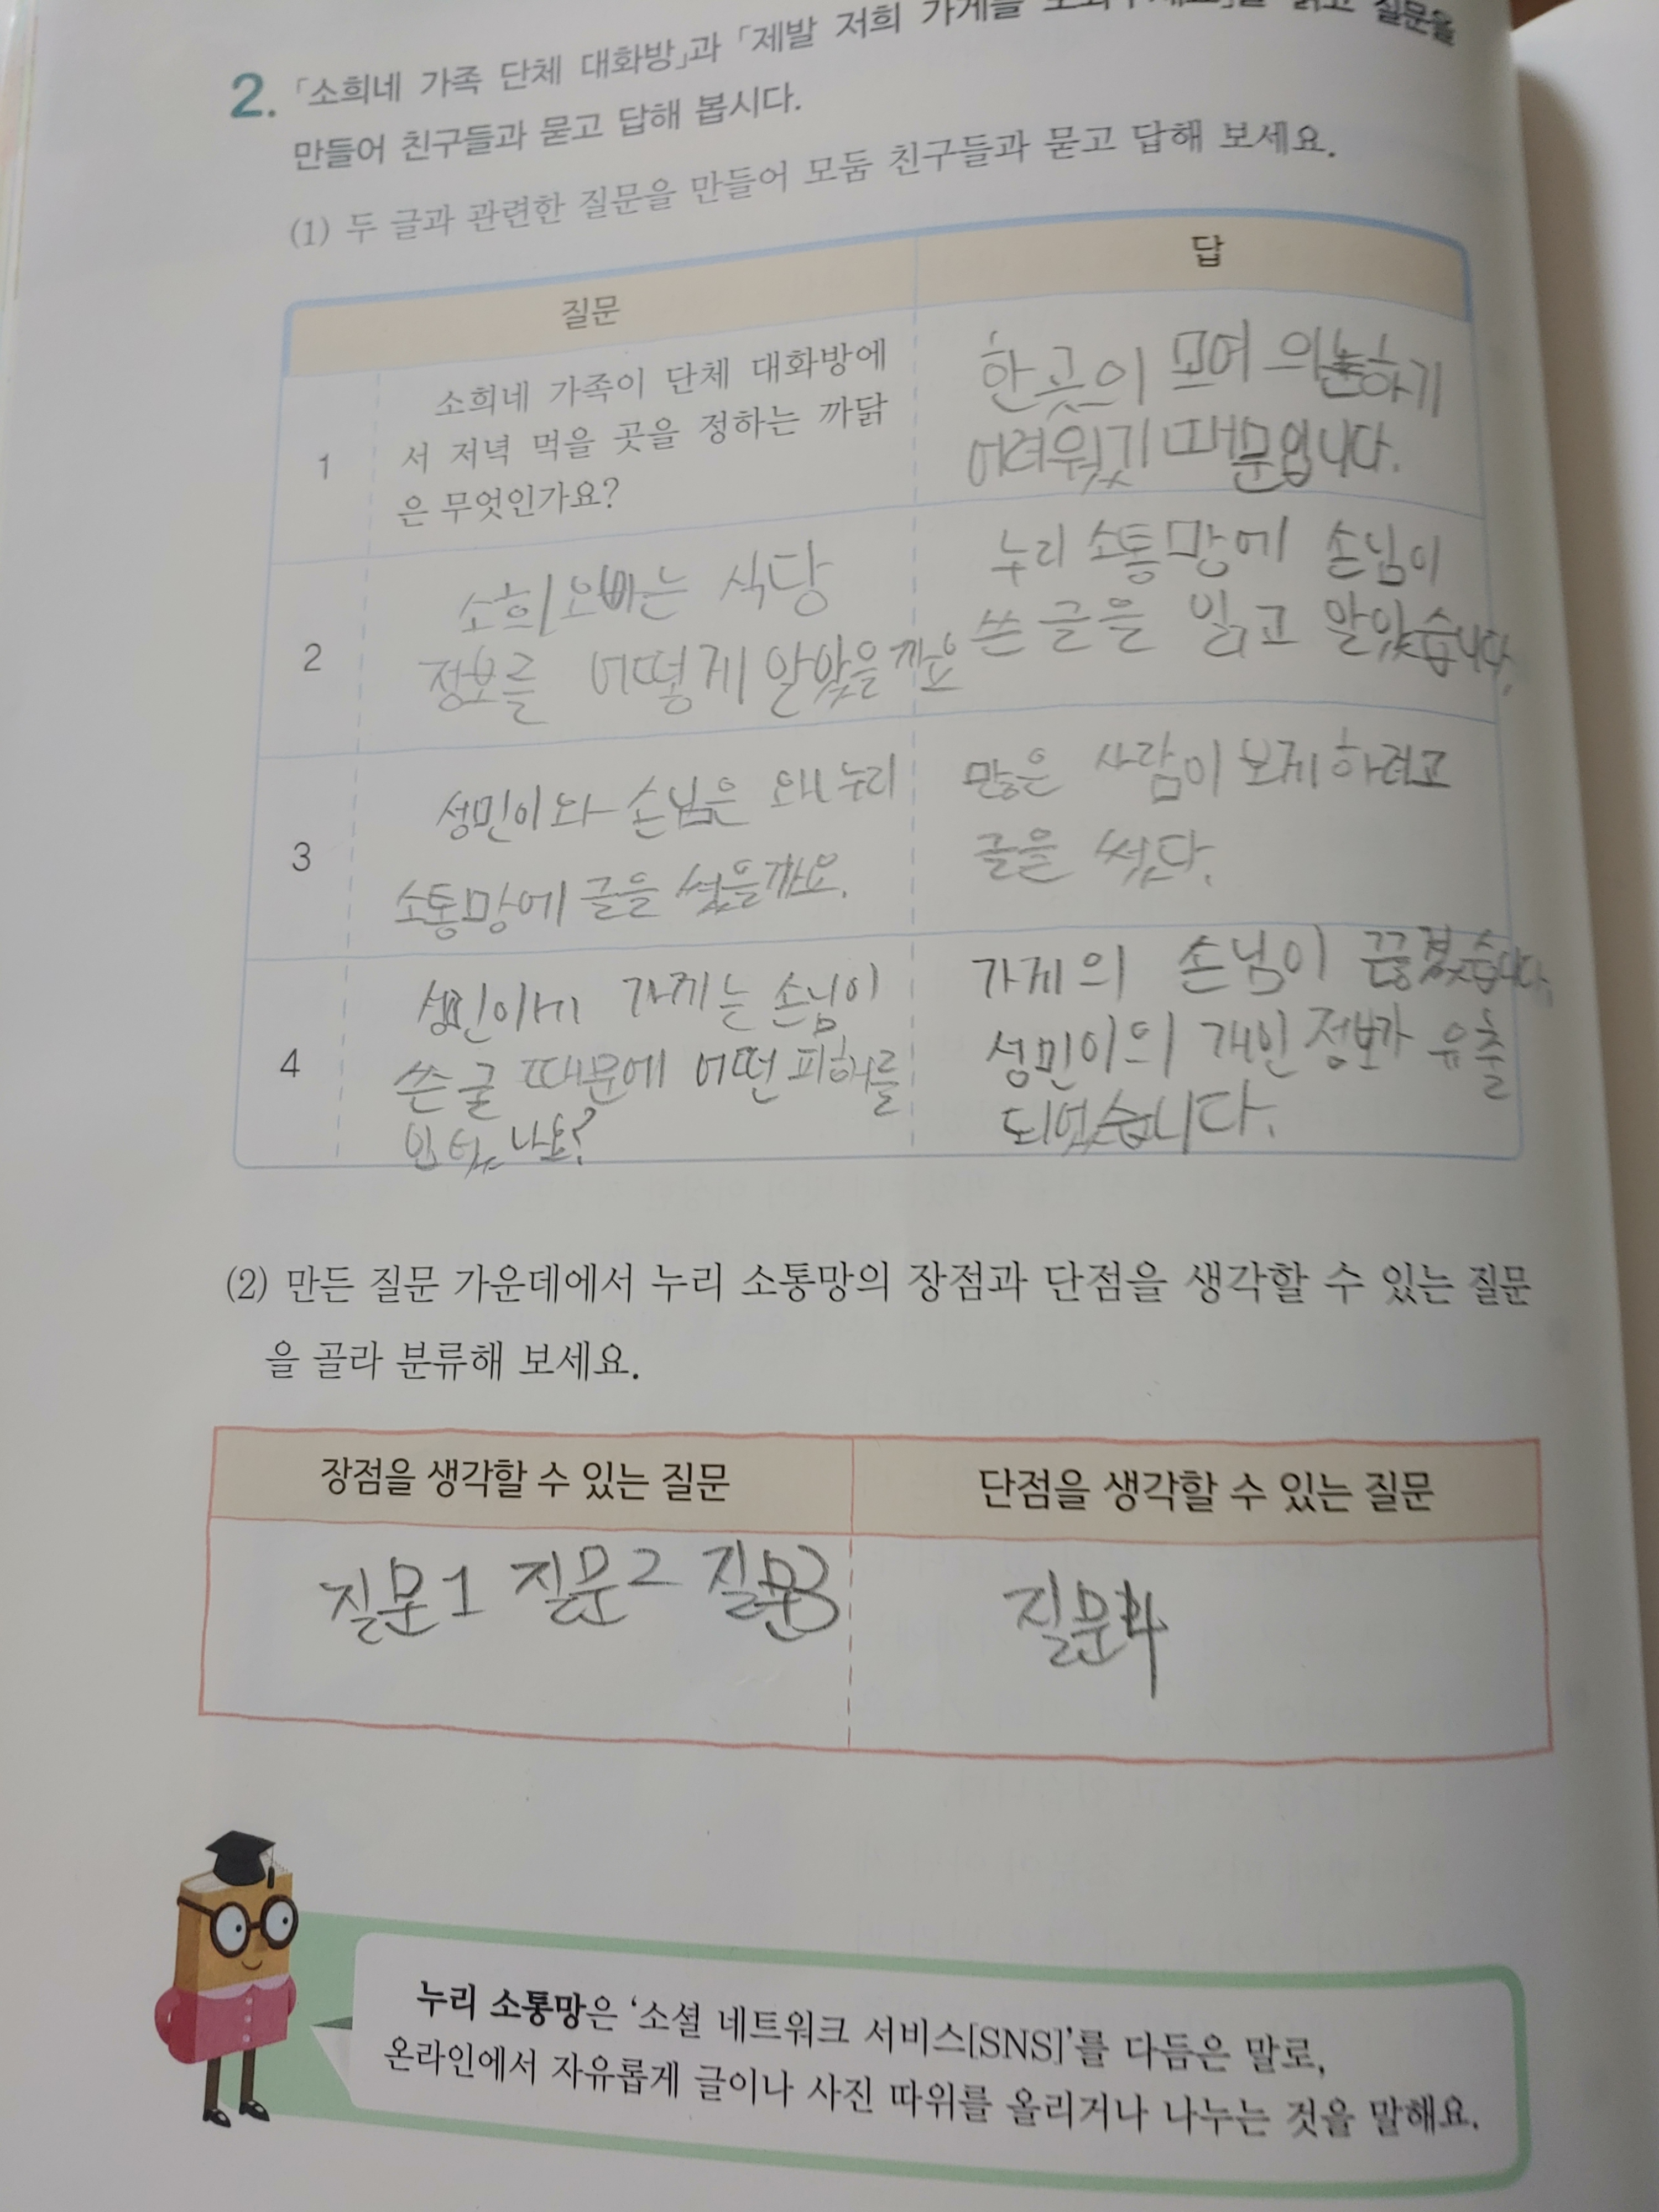 2. 「소희네 가족 단체 대화방」과 「제발 저희 가게를 질문을
만들어 친구들과 묻고 답해 봅시다.
(1) 두 글과 관련한 질문을 만들어 모둠 친구들과 묻고 답해 보세요.
질문
답
1
소희네 가족이 단체 대화방에
서 저녁 먹을 곳을 정하는 까닭
은 무엇인가요?
한 곳이 모여 의논하기
어려웠기 때문입니다.
2
소희 오빠는 식당
정보를 어떻게 알았을까요
누리 소통망에 손님이
쓴 글을 읽고 알았습니다.
3
성민이와 손님은 왜 누리
소통망에 글을 썼을까요.
많은 사람이 보게 하려고
글을 썼다.
4
성민이네 가게는 손님이
쓴 글 때문에 어떤 피해를
입었나요?
가게의 손님이 끊겼습니다.
성민이의 개인 정보가 유출
되었습니다.
(2) 만든 질문 가운데에서 누리 소통망의 장점과 단점을 생각할 수 있는 질문
을 골라 분류해 보세요.
장점을 생각할 수 있는 질문
단점을 생각할 수 있는 질문
질문1 질문2 질문3
질문4
누리 소통망은 ‘소셜 네트워크 서비스[SNS]’를 다듬은 말로,
온라인에서 자유롭게 글이나 사진 따위를 올리거나 나누는 것을 말해요.